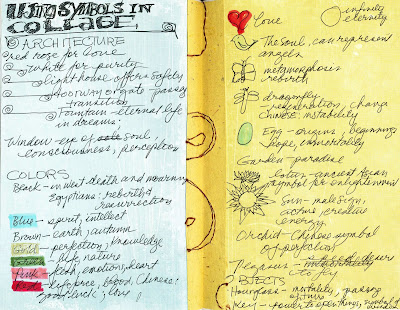 USING SYMBOLS IN
COLLAGE
ARCHITECTURE
red rose for love
white for purity
lighthouse offers safety
doorway or gate passes
transition
Fountain - eternal life
in dreams:
Window - eye of soul,
consciousness, perception
COLORS
Black - in West death and mourning
Egyptians: rebirth &
resurrection
Blue - spirit, intellect
Brown - earth, autumn
Gold - perfection, knowledge
life, nature
Pink - flesh, emotions, heart
Red - life force, blood, Chinese:
good luck; love
Love
infinity
eternity
The Soul, can represent
angels
metamorphosis
rebirth
dragonfly
regeneration, change
Chinese: instability
Egg - origins, beginnings
hope, immortality
Garden - paradise
lotus - ancient Asian
symbol for enlightenment
Sun - male sign,
active, creative
energy
Orchid - Chinese symbol
of perfection
Pegasus - desire
to fly
OBJECTS
Hourglass - mortality, passing
of time
Key - power to open things, symbol of